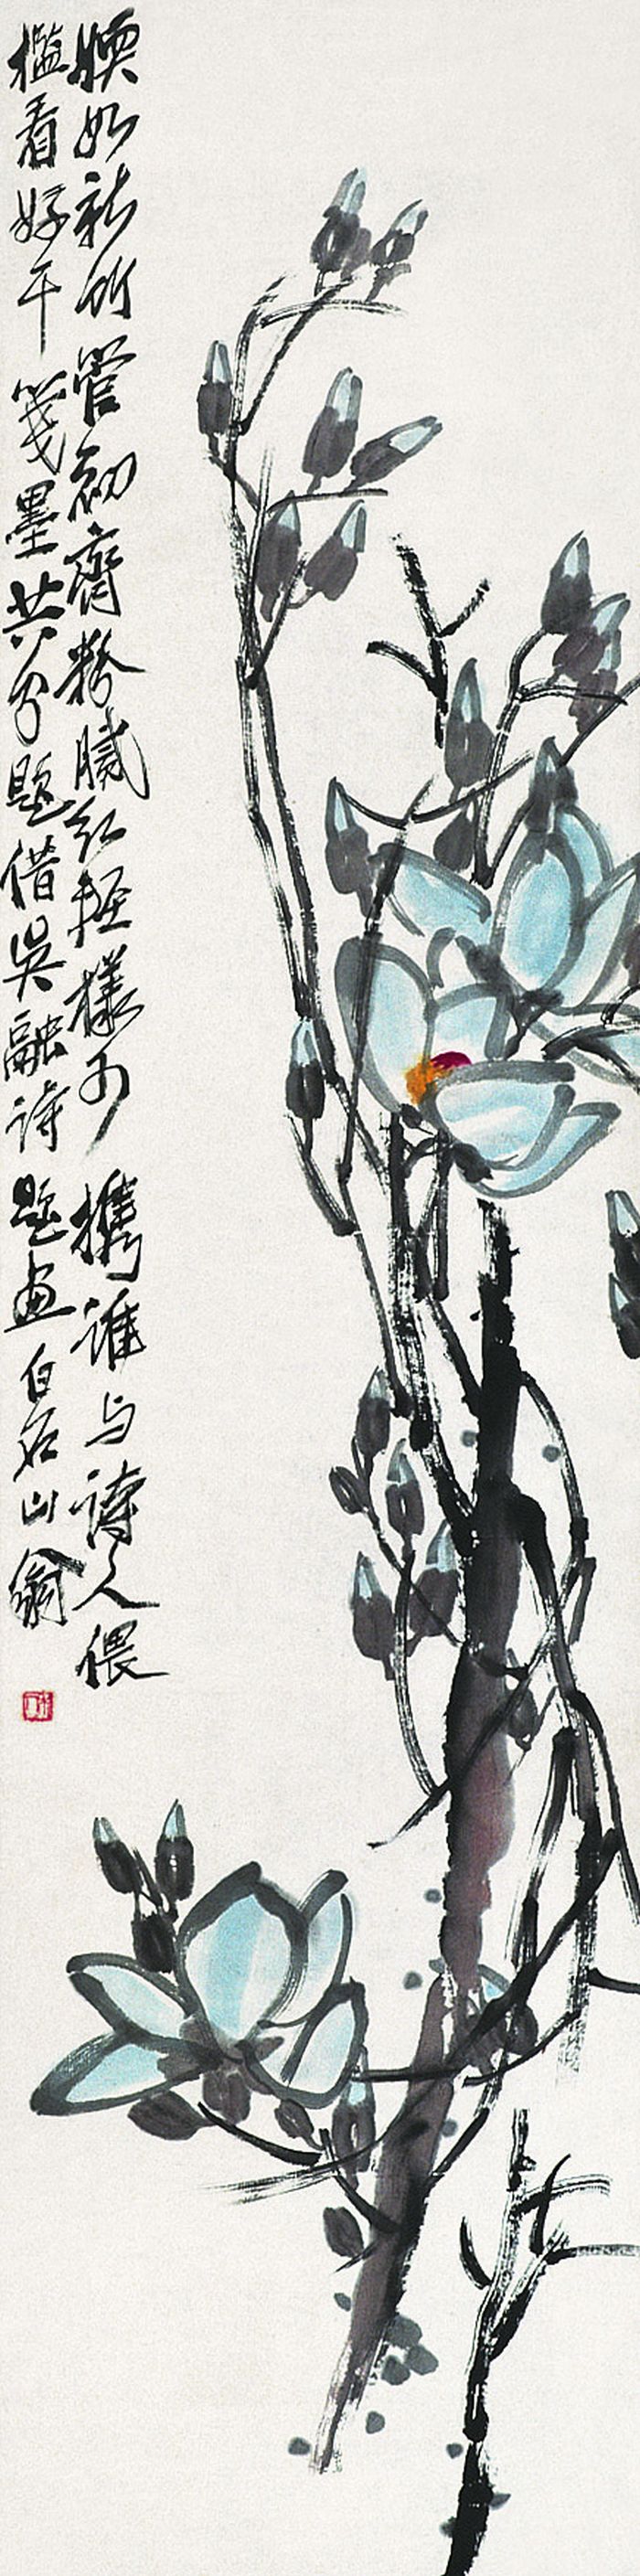 媆如新竹管初齊粉膩紅輕樣可攜誰與詩人偎
檻看好于箋墨共分題借吳融詩題畫白石山翁